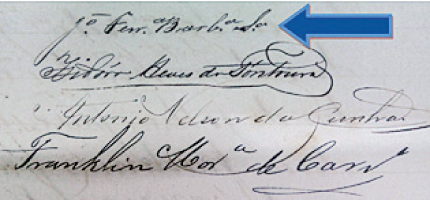 Jº Ferrª Barbª Sª
Izidóro Alves da Fontoura
Antonio Nelson da Cunha
Franklin Morª de Carvº